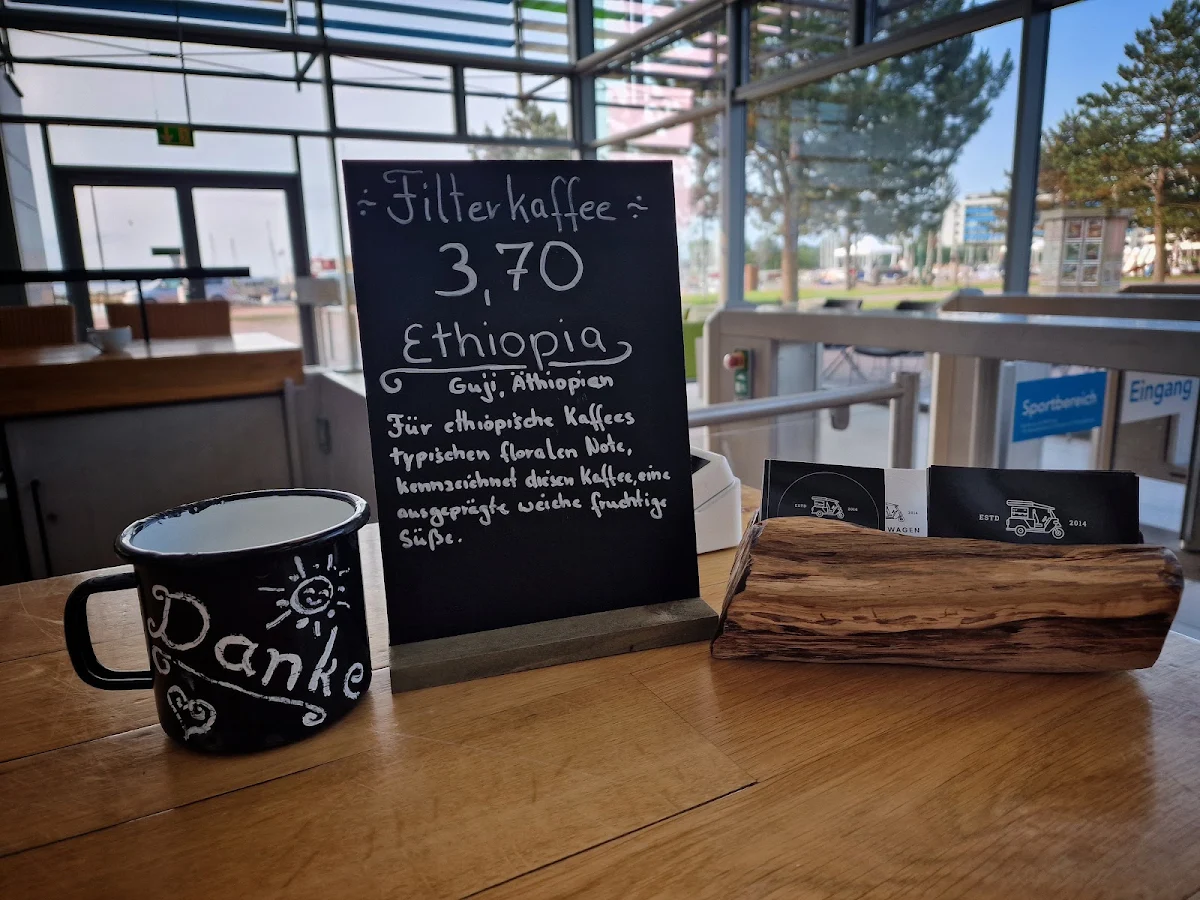 ÷ Filterkaffee ÷
3,70
Ethiopia
Guji, Äthiopien
Für ethiopische Kaffees
typischen floralen Note,
kennzeichnet diesen Kaffee, eine
ausgeprägte weiche fruchtige
Süße.
Danke
ESTD 2014
2014
WAGEN
ESTD 2014
Sportbereich
Eingang